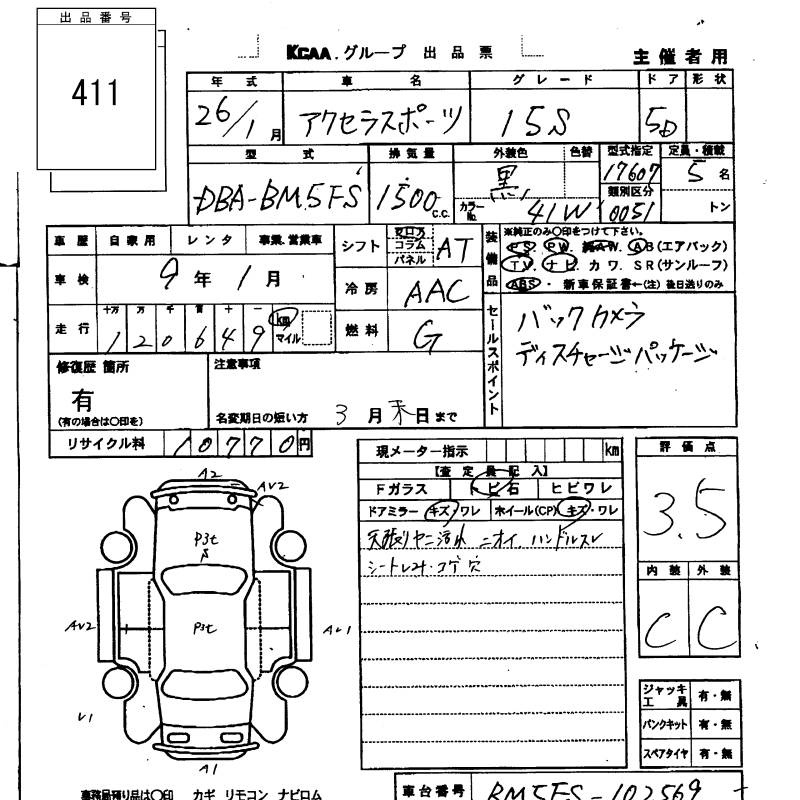 出品番号
411
KCAA.グループ 出品票
主催者用
年式 車名 グレード ドア 形状
26/1月 アクセラスポーツ 15S 5D
型式 排気量 外装色 色替 型式指定 定員・積載
DBA-BM5FS 1500c.c. 黒 17607 5名
類別区分
カラーNo. 41W 0051 トン
車歴 自家用 レンタ 事業、営業車
車検 9年1月
走行 十万 万 千 百 十 一
120649 km マイル
シフト フロア コラム パネル AT
冷房 AAC
燃料 G
装備品
※純正のみ〇印をつけて下さい。
P.S. P.W. A.W. A B(エアバック)
T V. ナビ. カワ. S R(サンルーフ)
ABS・ 新車保証書←(注) 後日送りのみ
セールスポイント
バックカメラ
ディスチャージパッケージ
修復歴 箇所
有
(有の場合は〇印を)
注意事項
名変期日の短い方 3月末日まで
リサイクル料 10770円
現メーター指示 km
【査定員記入】
Fガラス トビ石 ヒビワレ
ドアミラー キズ・ワレ ホイール(CP) キズ・ワレ
天張りヤニ汚れ ニオイ、ハンドルスレ
シートシミ・コゲ穴
評価点
3.5
内装 外装
C C
A2
AV2
P3t
AV2
P3t
AV1
V1
A1
ジャッキ 工具 有・無
パンクキット 有・無
スペアタイヤ 有・無
事務局預り品は〇印 カギ リモコン ナビロム
車台番号 BM5FS-102569